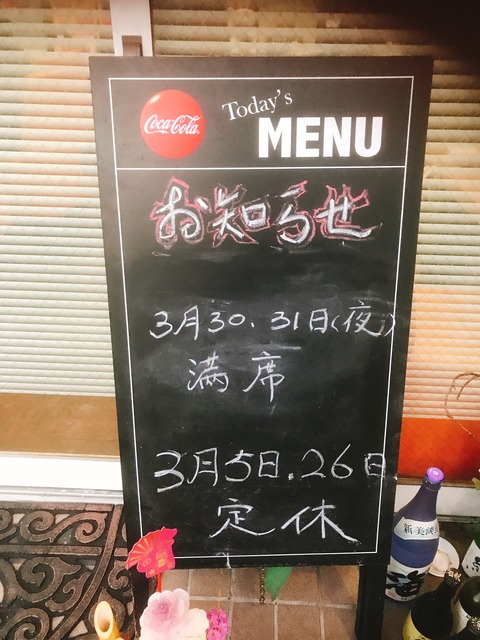 Coca-Cola
Today's
MENU
お知らせ
3月30.31日(夜)
満席
3月5日.26日
定休